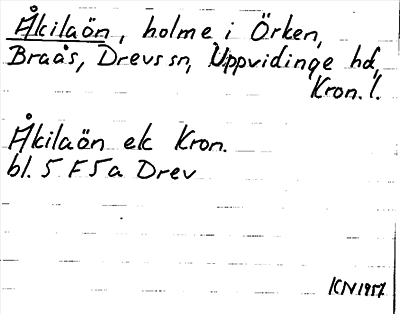 Åkilaön, holme i Örken,
Braås, Drevs sn, Uppvidinge hd,
Kron. l.
Åkilaön ek Kron.
bl. 5 F 5a Drev
ICN 1957